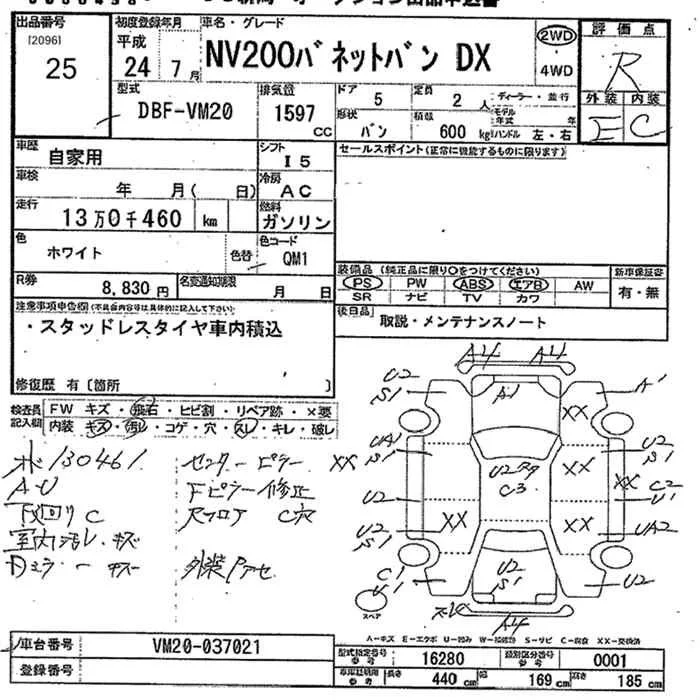 出品番号
[2096]
25
初度登録年月
平成
24 7月
車名・グレード
NV200バネットバン DX
2WD
4WD
評価点
R
外装 内装
E C
型式
DBF-VM20
排気量
1597
CC
ドア
5
定員
2人
ディーラー・並行
形状
バン
積載
600 kg
モデル年式 年
ハンドル 左・右
車歴
自家用
シフト
I5
セールスポイント(正常に機能するものに限ります)
車検
年 月( 日)
冷房
AC
走行
13万0千460 km
燃料
ガソリン
色
ホワイト
色替
色コード
QM1
R券
8,830円
名変通知期限
月 日
装備品 (純正品に限り○をつけてください)
PS PW ABS エアB AW
SR ナビ TV カワ
新車保証書
有・無
後日品
取説・メンテナンスノート
注意事項申告欄(不具合内容等は具体的に記入して下さい)
・スタッドレスタイヤ車内積込
修復歴 有〔箇所 〕
検査員記入欄
FW キズ・飛石・ヒビ割・リペア跡・×要
内装 キズ・汚レ・コゲ・穴・スレ・キレ・破レ
130461
A-U
下回りC
室内汚レ・キズ
Dミラーキズ
センターピラー XX
Fピラー修正
Rフロア C穴
A4 A4
U2
S1
A1
A1
XX
UA1
S1
U2
S1
U2
C3
XX
XX
C2
U1
U2
U2
S1
XX
XX
UA2
C1
U1
U2
S1
U2
スレ
A4
スペア
A-キズ E-エクボ U-凹み W-補修跡 S-サビ C-腐食 XX-交換済
車台番号
VM20-037021
登録番号
型式指定番号
参考
16280
類別区分番号
参考
0001
車庫証明用
参考
長さ 440 cm 幅 169 cm 高さ 185 cm